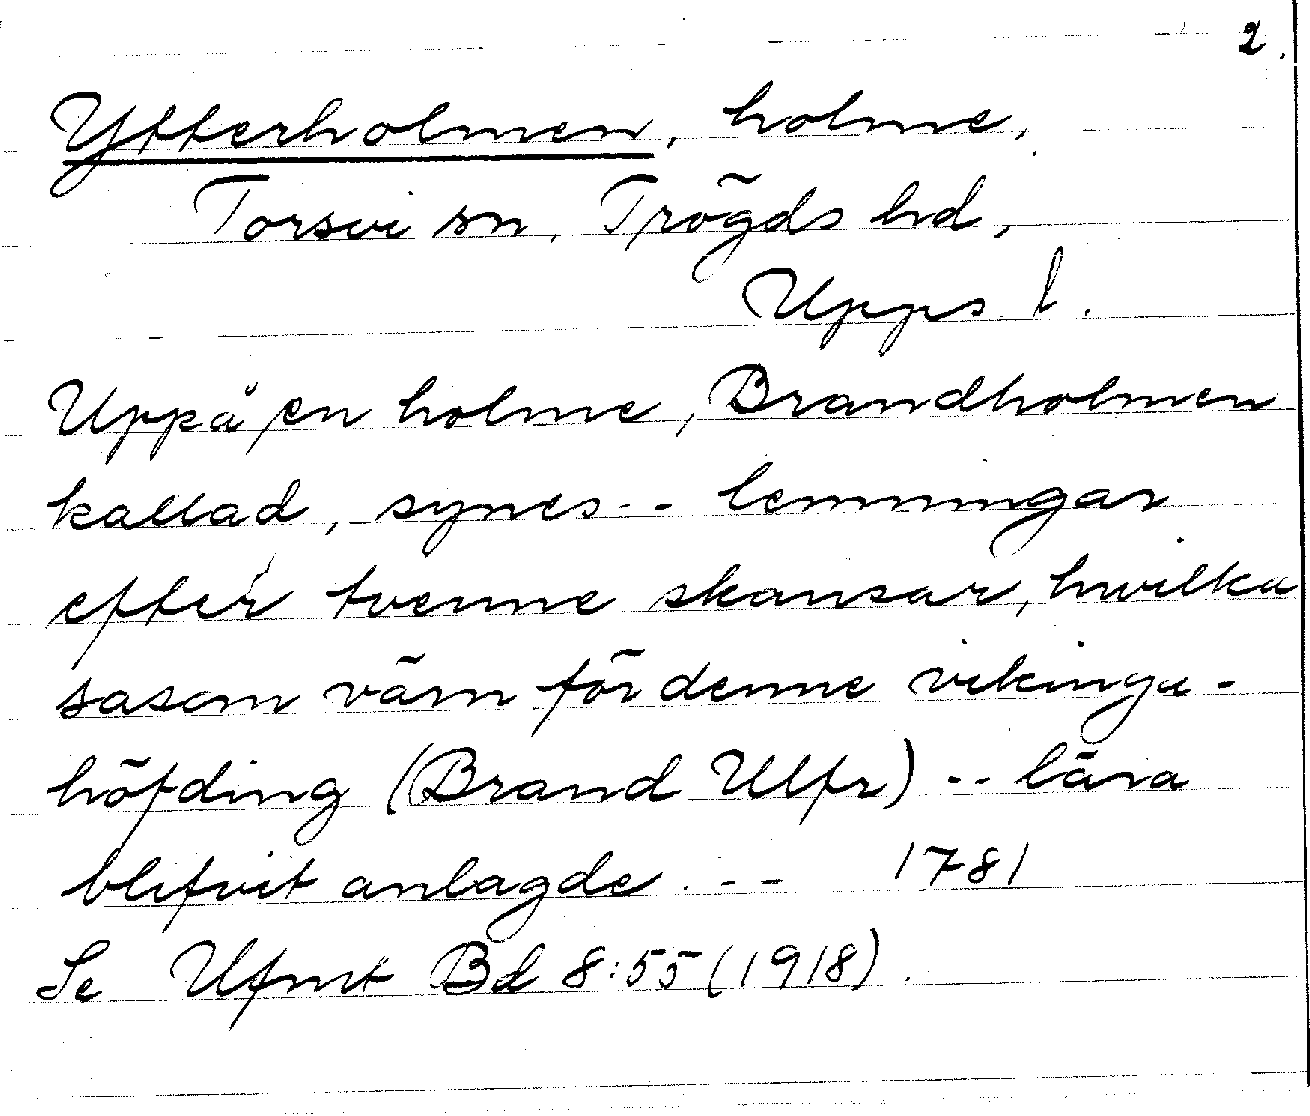 2.
Ytterholmen, holme,
Torsvi sn, Trögds hd,
Upps l.
Uppå en holme, Brandholmen
kallad, synes -- lemningar
efter tvenne skansar, hwilka
sasom värn för denne vikinga-
höfding (Brand Ulfr) -- lära
blifvit anlagde. -- 1781
Se Ufmt Bd 8:55 (1918).